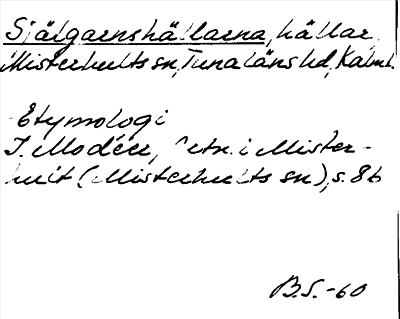 Själgarnshällarna, hällar
Misterhults sn, Tunaläns hd, Kalm. l.
Etymologi
I. Modéer, Ortn. i Mister-
hult (Misterhults sn), s. 86
B.S.-60